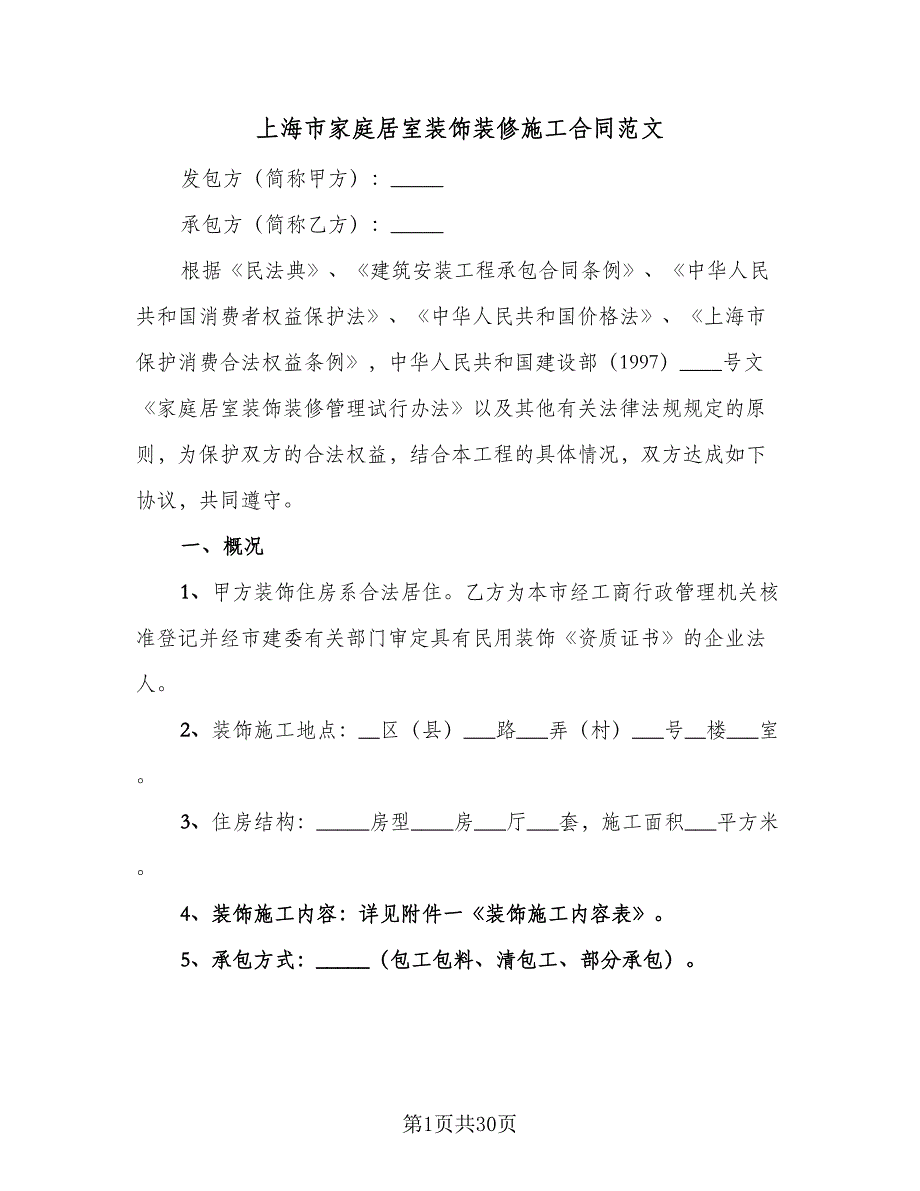 上海市家庭居室装饰装修施工合同范文
发包方（简称甲方）：_____
承包方（简称乙方）：_____
根据《民法典》、《建筑安装工程承包合同条例》、《中华人民
共和国消费者权益保护法》、《中华人民共和国价格法》、《上海市
保护消费合法权益条例》，中华人民共和国建设部（1997）____号文
《家庭居室装饰装修管理试行办法》以及其他有关法律法规规定的原
则，为保护双方的合法权益，结合本工程的具体情况，双方达成如下
协议，共同遵守。
一、概况
1、甲方装饰住房系合法居住。乙方为本市经工商行政管理机关核
准登记并经市建委有关部门审定具有民用装饰《资质证书》的企业法
人。
2、装饰施工地点：__区（县）___路___弄（村）___号__楼___室
。
3、住房结构：_____房型____房___厅___套，施工面积___平方米
。
4、装饰施工内容：详见附件一《装饰施工内容表》。
5、承包方式：_____（包工包料、清包工、部分承包）。
第1页共30页